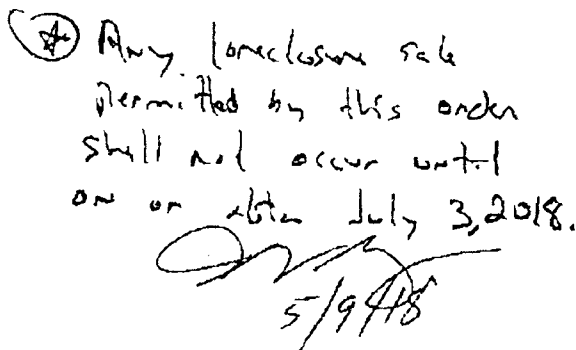 Any foreclosure sale
permitted by this order
shall not occur until
on or after July 3, 2018.
5/9/18